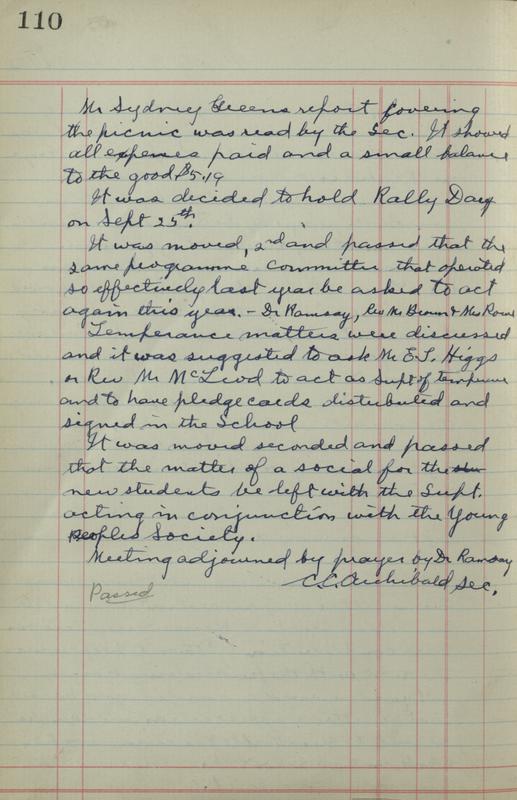 110
Mr Sydney Greens report covering
the picnic was read by the Sec. It showed
all expenses paid and a small balance
to the good $5.19
It was decided to hold Rally Day
on Sept 25th.
It was moved, 2nd and passed that the
same programme committee that operated
so effectively last year be asked to act
again this year. - Dr Ramsay, Rev Mr Brown & Mrs Rowe
Temperance matters were discussed
and it was suggested to ask Mr E.L. Higgs
or Rev Mr McLeod to act as Supt of temperance
and to have pledge cards distributed and
signed in the School
It was moved seconded and passed
that the matter of a social for the
new students be left with the Supt.
acting in conjunction with the Young
Peoples Society.
Meeting adjourned by prayer by Dr Ramsay
C.L. Archibald Sec.
Passed